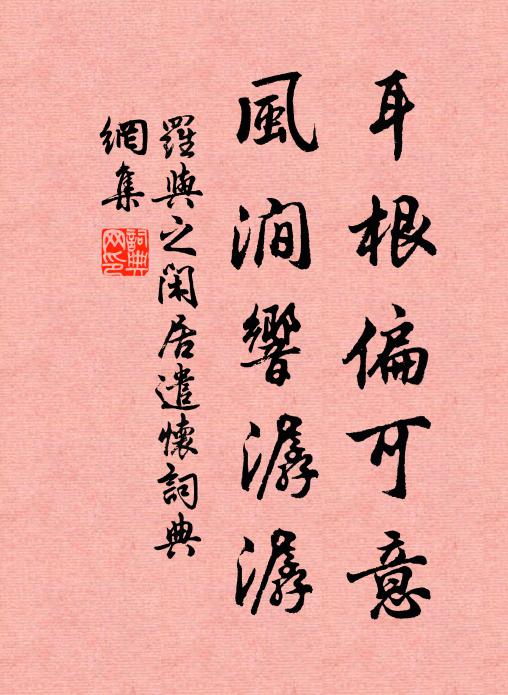 耳根偏可意
風澗響潺潺
羅與之閑居遣懷詞典
網集
詞典網印